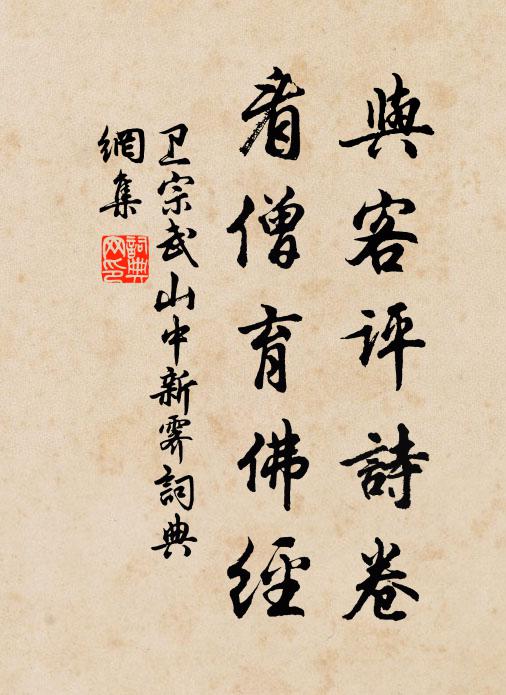 與客評詩卷
看僧育佛經
卫宗武山中新霽詞典
網集
詞典
网印